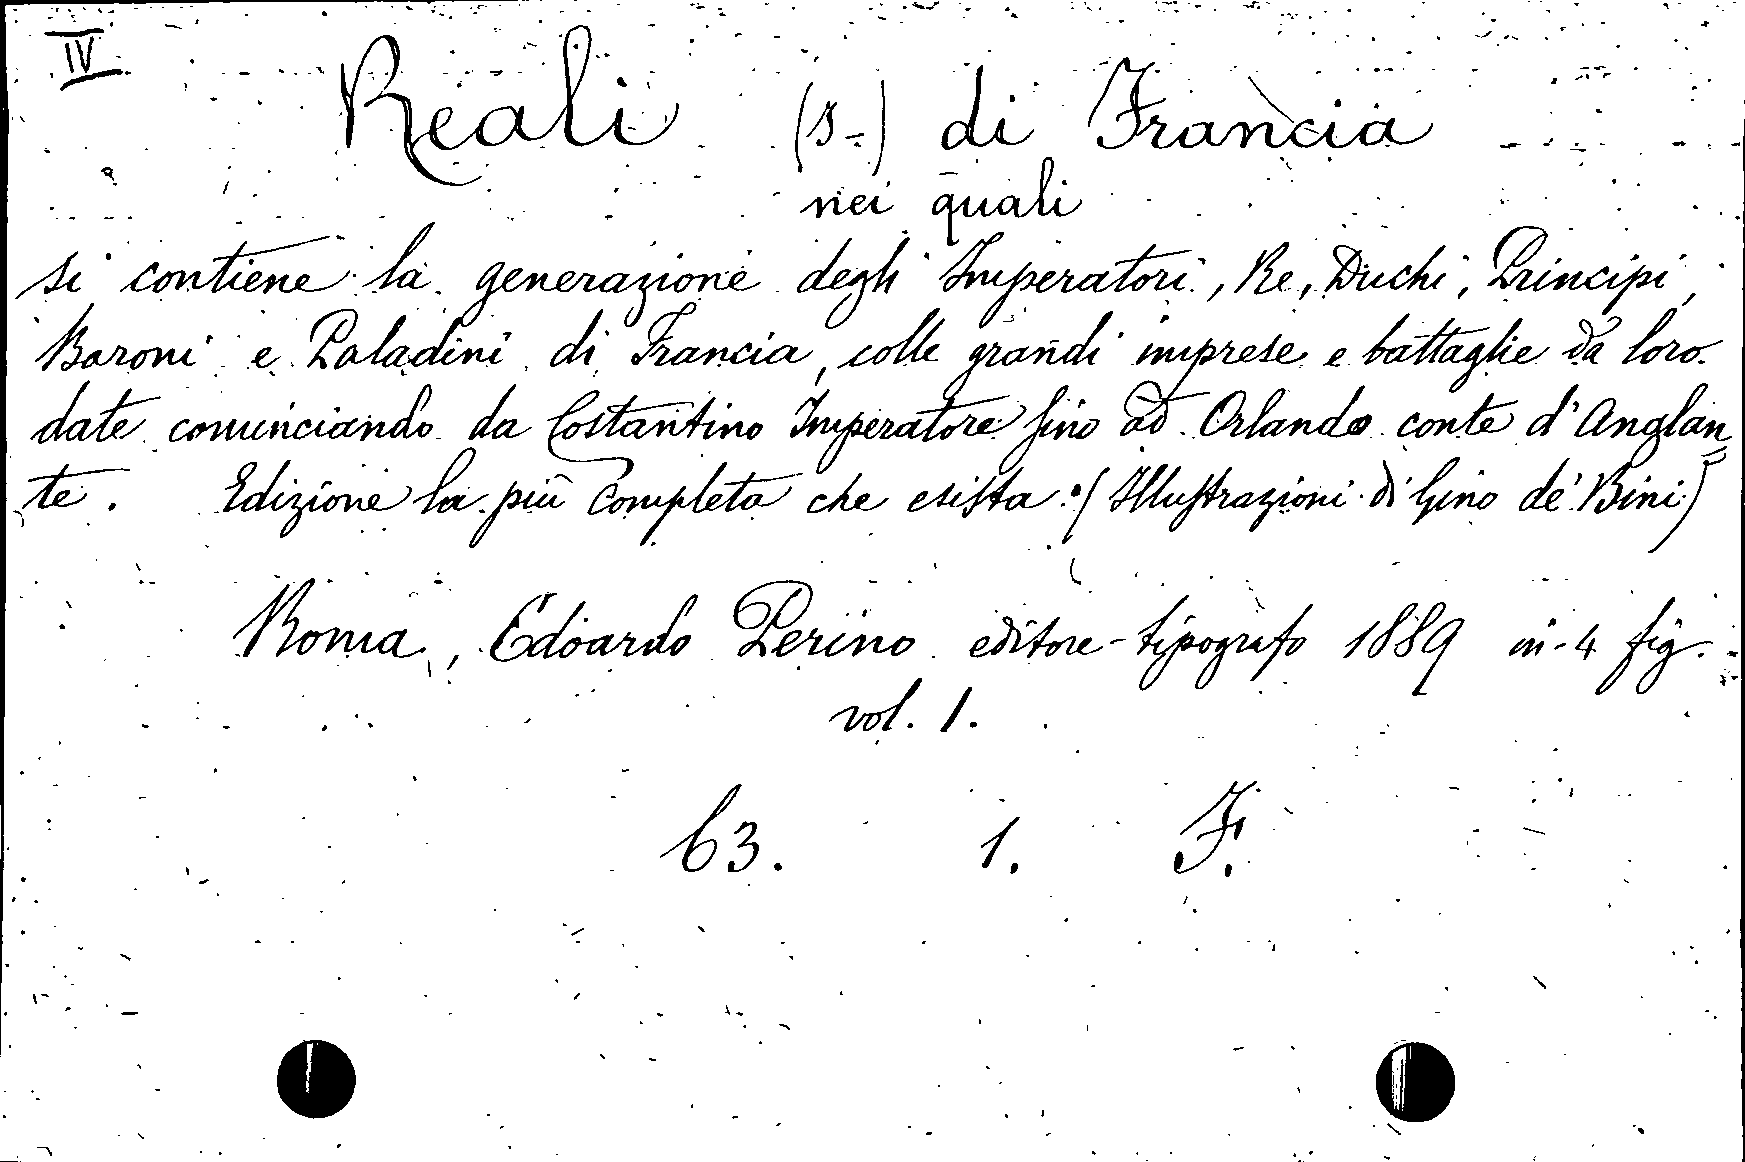 IV
Reali (I-) di Francia
nei quali
si contiene la generazione degli Imperatori, Re, Duchi, Principi,
Baroni e Paladini di Francia, colle grandi imprese e battaglie da loro
date cominciando da Costantino Imperatore fino ad Orlando conte d'Anglan=
te. Edizione la più completa che esista. (Illustrazioni di Gino de' Bini)
Roma, Edoardo Perino editore-tipografo 1889 in-4 fig.
vol. 1.
63. 1. F.